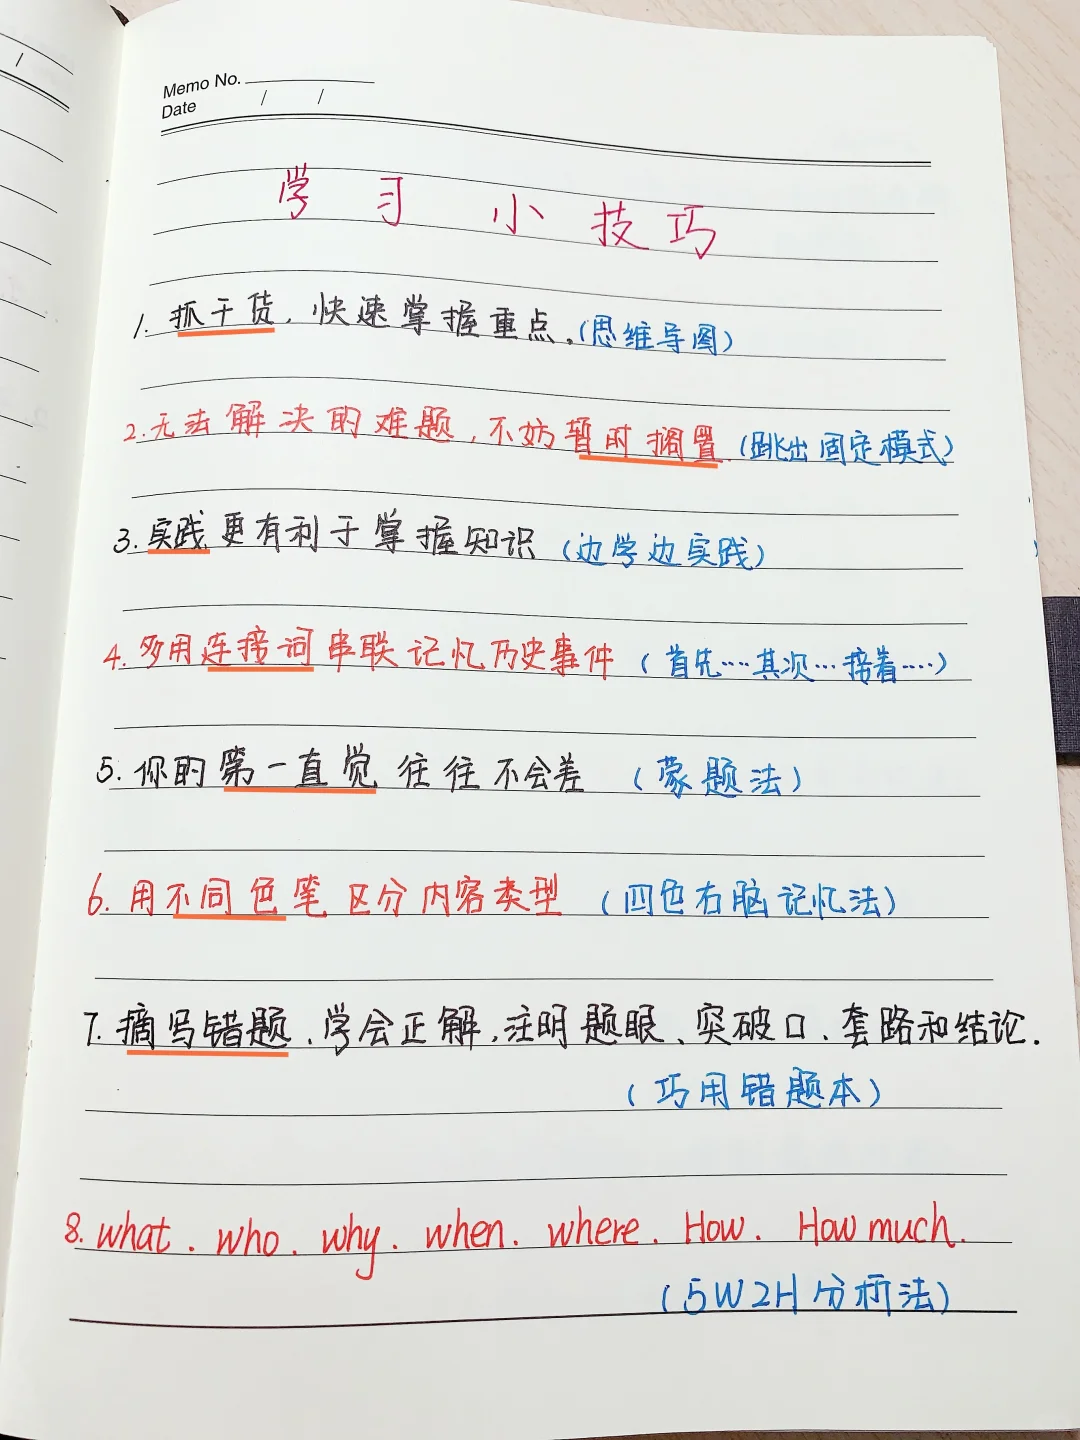 Memo No.
Date / /
学习小技巧
1. 抓干货，快速掌握重点.(思维导图)
2.无法解决的难题，不妨暂时搁置.(跳出固定模式)
3.实践更有利于掌握知识 (边学边实践)
4.多用连接词串联记忆历史事件 (首先……其次…接着……)
5.你的第一直觉往往不会差 (蒙题法)
6.用不同色笔区分内容类型 (四色右脑记忆法)
7.摘写错题、学会正解,注明题眼、突破口、套路和结论.
(巧用错题本)
8.what. who. why. when. where. How. How much.
(5W2H分析法)